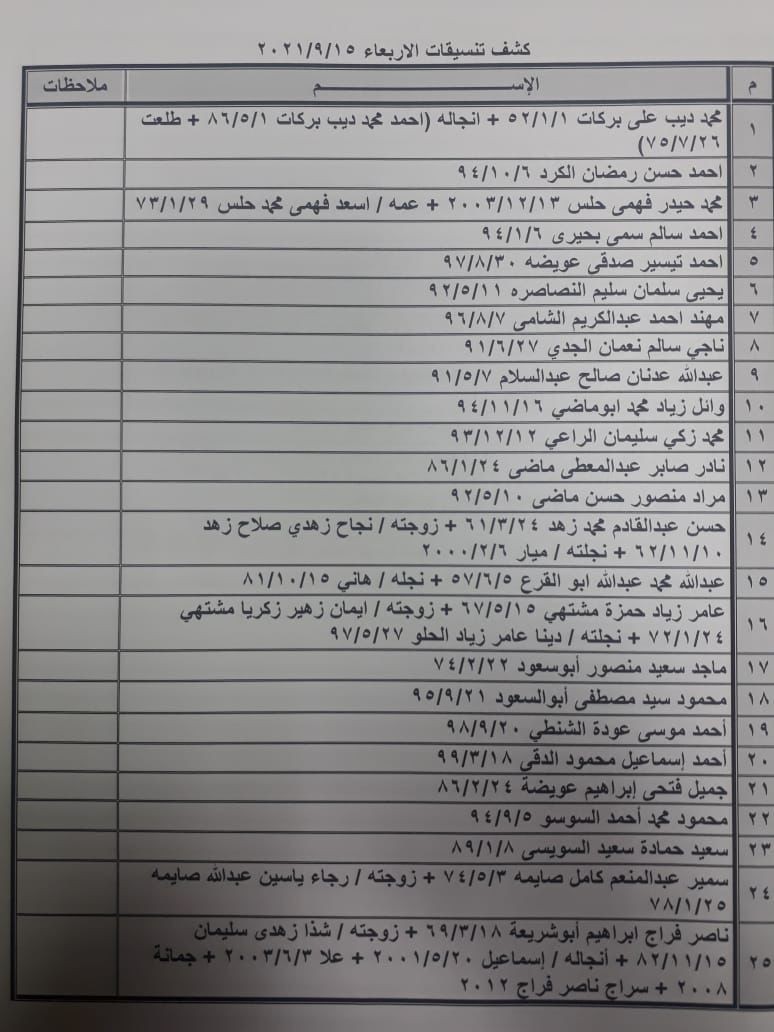 كشف تنسيقات الاربعاء ٢٠٢١/٩/١٥
م الإســـــــــم ملاحظات
١ محمد ديب على بركات ٥٢/١/١ + انجاله (احمد محمد ديب بركات ٨٦/٥/١ + طلعت
٧٥/٧/٢٦)
٢ احمد حسن رمضان الكرد ٩٤/١٠/٦
٣ محمد حيدر فهمى حلس ٢٠٠٣/١٢/١٣ + عمه / اسعد فهمى محمد حلس ٧٣/١/٢٩
٤ احمد سالم سمى بحيرى ٩٤/١/٦
٥ احمد تيسير صدقى عويضه ٩٧/٨/٣٠
٦ يحيى سلمان سليم النصاصره ٩٢/٥/١١
٧ مهند احمد عبدالكريم الشامى ٩٦/٨/٧
٨ ناجي سالم نعمان الجدي ٩١/٦/٢٧
٩ عبدالله عدنان صالح عبدالسلام ٩١/٥/٧
١٠ وائل زياد محمد ابوماضي ٩٤/١١/١٦
١١ محمد زكي سليمان الراعي ٩٣/١٢/١٢
١٢ نادر صابر عبدالمعطى ماضى ٨٦/١/٢٤
١٣ مراد منصور حسن ماضى ٩٢/٥/١٠
١٤ حسن عبدالقادم محمد زهد ٦١/٣/٢٤ + زوجته / نجاح زهدي صلاح زهد
٦٢/١١/١٠ + نجلته / ميار ٢٠٠٠/٢/٦
١٥ عبدالله محمد عبدالله ابو القرع ٥٧/٦/٥ + نجله / هاني ٨١/١٠/١٥
١٦ عامر زياد حمزة مشتهي ٦٧/٥/١٥ + زوجته / ايمان زهير زكريا مشتهي
٧٢/١/٢٤ + نجلته / دينا عامر زياد الحلو ٩٧/٥/٢٧
١٧ ماجد سعيد منصور أبوسعود ٧٤/٢/٢٢
١٨ محمود سيد مصطفى أبوالسعود ٩٥/٩/٢١
١٩ أحمد موسى عودة الشنطي ٩٨/٩/٢٠
٢٠ أحمد إسماعيل محمود الدقى ٩٩/٣/١٨
٢١ جميل فتحى إبراهيم عويضة ٨٦/٢/٢٤
٢٢ محمود محمد أحمد السوسو ٩٤/٩/٥
٢٣ سعيد حمادة سعيد السويسى ٨٩/١/٨
٢٤ سمير عبدالمنعم كامل صايمه ٧٤/٥/٣ + زوجته / رجاء ياسين عبدالله صايمه
٧٨/١/٢٥
٢٥ ناصر فراج ابراهيم أبوشريعة ٦٩/٣/١٨ + زوجته / شذا زهدى سليمان
٨٢/١١/١٥ + أنجاله / إسماعيل ٢٠٠١/٥/٢٠ + علا ٢٠٠٣/٦/٣ + جمانة
٢٠٠٨ + سراج ناصر فراج ٢٠١٢